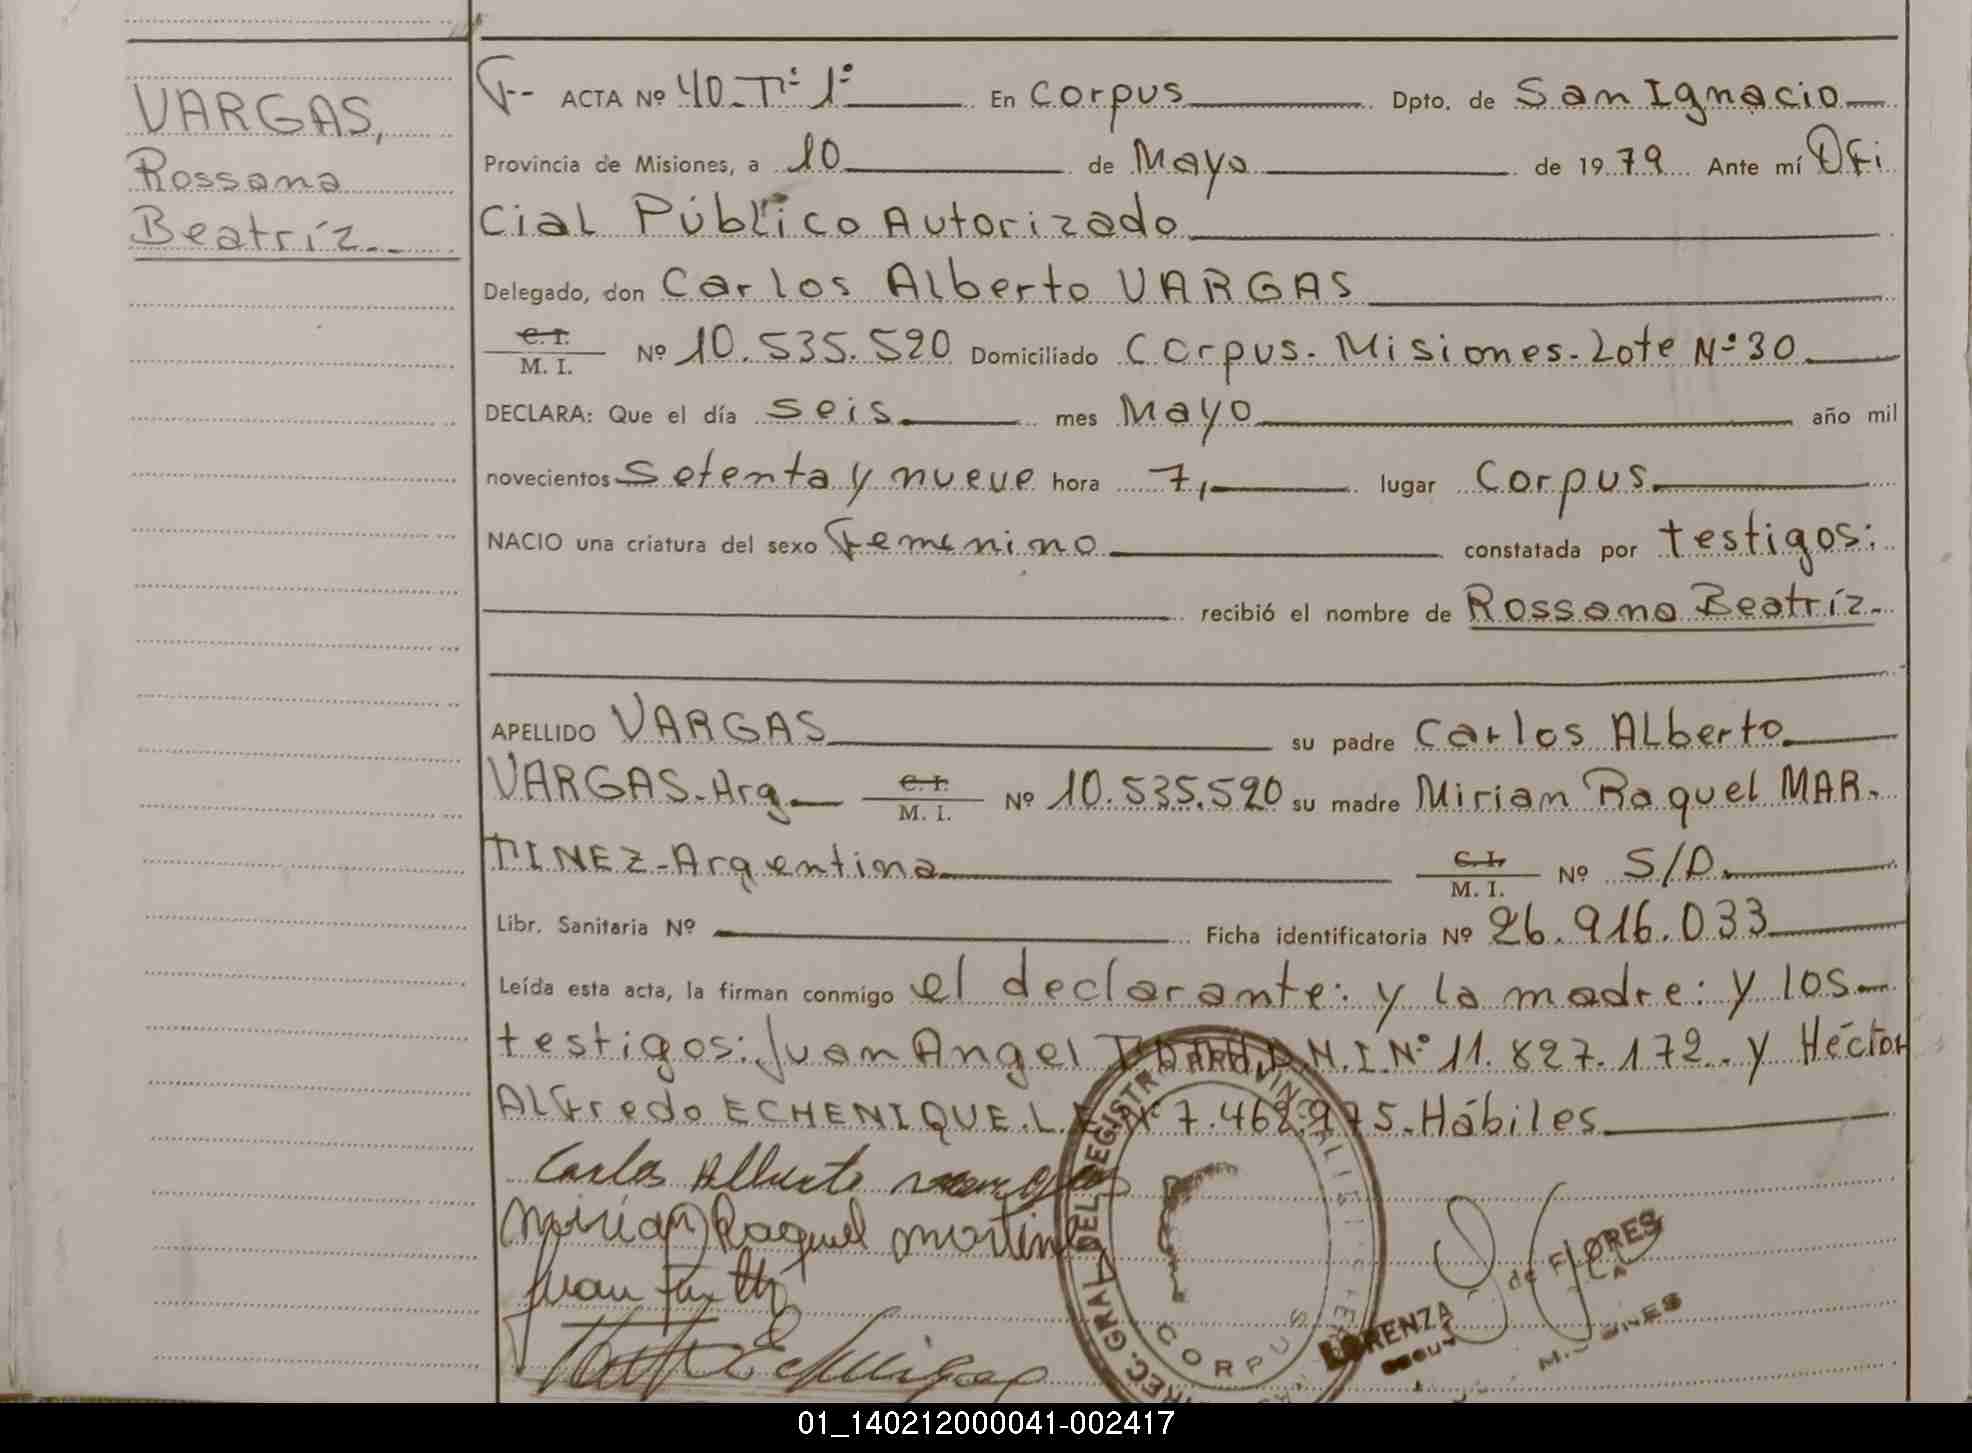 VARGAS,
Rossana
Beatríz.-
F-- ACTA Nº 40-Tº 1º En Corpus Dpto. de San Ignacio
Provincia de Misiones, a 10 de Mayo de 1979 Ante mí Ofi
cial Público Autorizado
Delegado, don Carlos Alberto VARGAS
C. I.
M. I. Nº 10.535.520 Domiciliado Corpus. Misiones. Lote Nº 30
DECLARA: Que el día seis mes Mayo año mil
novecientos Setenta y nueve hora 7, lugar Corpus
NACIO una criatura del sexo Femenino constatada por testigos:
recibió el nombre de Rossana Beatríz.
APELLIDO VARGAS su padre Carlos Alberto
VARGAS.Arg. C. I. M. I. Nº 10.535.520 su madre Mirian Raquel MAR-
TINEZ-Argentina C. I. M. I. Nº S/D.
Libr. Sanitaria Nº Ficha identificatoria Nº 26.916.033
Leída esta acta, la firman conmigo el declarante: y la madre: y los
testigos: Juan Angel D.N.I.Nº 11.827.172. y Héctor
Alfredo ECHENIQUE.L.E.Nº 7.462.975.Hábiles
Carlos Alberto Vargas
Mirian Raquel Martinez
Juan
DIREC. GRAL. DEL REGISTRO PROVINCIAL
CORPUS
LORENZA de FLORES
01_140212000041-002417